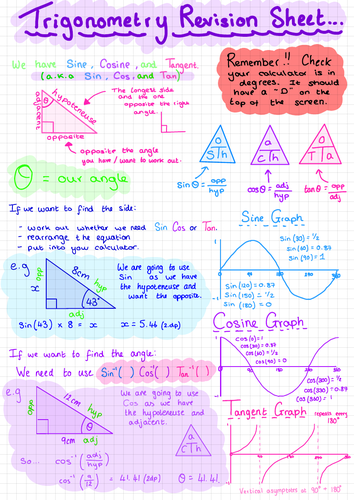 Trigonometry Revision Sheet...
We have Sine, Cosine, and Tangent.
(a.k.a Sin, Cos, and Tan)
Remember!! Check
your calculator is in
degrees. It should
have a "D" on the
top of the screen.
θ
hypotenuse
adjacent
opposite
The longest side
and the one
opposite the right
angle.
opposite the angle
you have / want to work out.
θ = our angle
o
S h
a
c h
o
T a
Sinθ = opp
hyp
cosθ = adj
hyp
tanθ = opp
adj
If we want to find the side:
- work out whether we need Sin Cos or Tan.
- rearrange the equation
- put into your calculator.
e.g
opp
x
8cm
hyp
43°
adj
We are going to use
Sin as we have
the hypotenuse and
want the opposite.
Sin(43) × 8 = x
x = 5.46 (2.dp)
Sine Graph
Sin(30) = 1/2
Sin(60) = 0.87
Sin(90) = 1
Sin(150) = 1/2
Sin(180) = 0
Cosine Graph
cos(0) = 1
cos(60) = 1/2
cos(90) = 0
If we want to find the angle:
We need to use Sin⁻¹( ) Cos⁻¹( ) Tan⁻¹( )
e.g
opp
12cm
hyp
θ
9cm adj
We are going to use
Cos as we have the
the hypotenuse and
adjacent.
a
c Th
So... cos⁻¹ (adj
hyp)
cos⁻¹ (9
12) = 41.41 (2dp)
θ = 41.41.
Tangent Graph
repeats every
180°
Vertical asymptotes at 90° + 180°